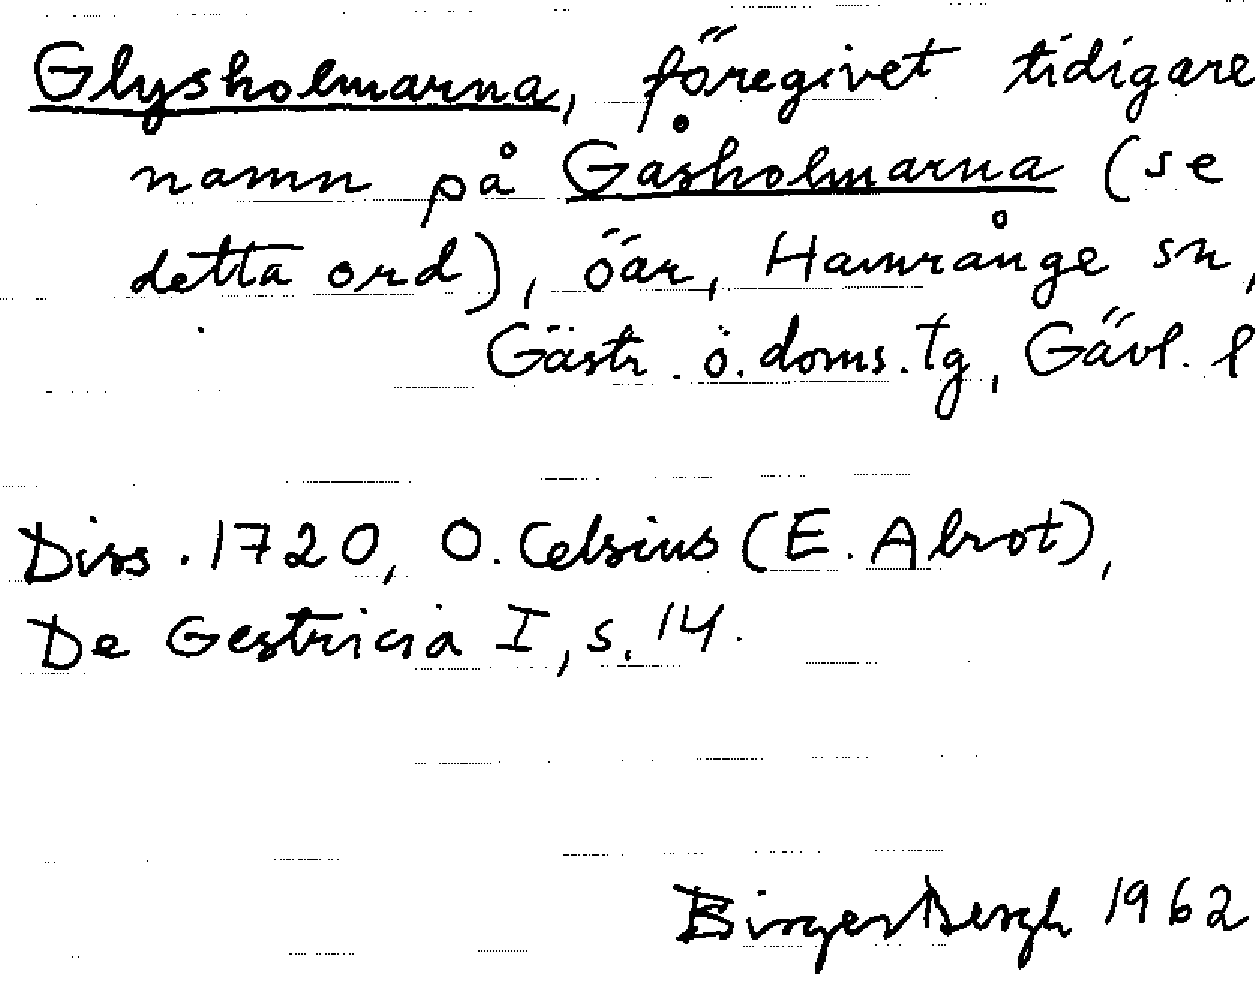 Glysholmarna, föregivet tidigare
namn på Gåsholmarna (se
detta ord), öar, Hamrånge sn,
Gästr. ö. doms. tg, Gävl. l
Diss. 1720, O. Celsius (E. Abrot),
De Gestricia I, s. 14.
Birger Bergh 1962